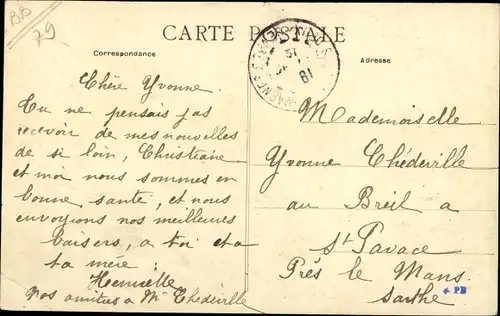 BB
79
CARTE POSTALE
Correspondance
Adresse
Chère Yvonne.
Tu ne pensais pas
recevoir de mes nouvelles
de si loin, Christiane
et moi nous sommes en
bonne santé, et nous
envoyions nos meilleures
baisers, a toi et a
ta mère.
Nos amitiés a Me Chedeville
Mademoiselle
Yvonne Chédeville
au Breil a
St Pavace
Près le Mans
Sarthe
PB